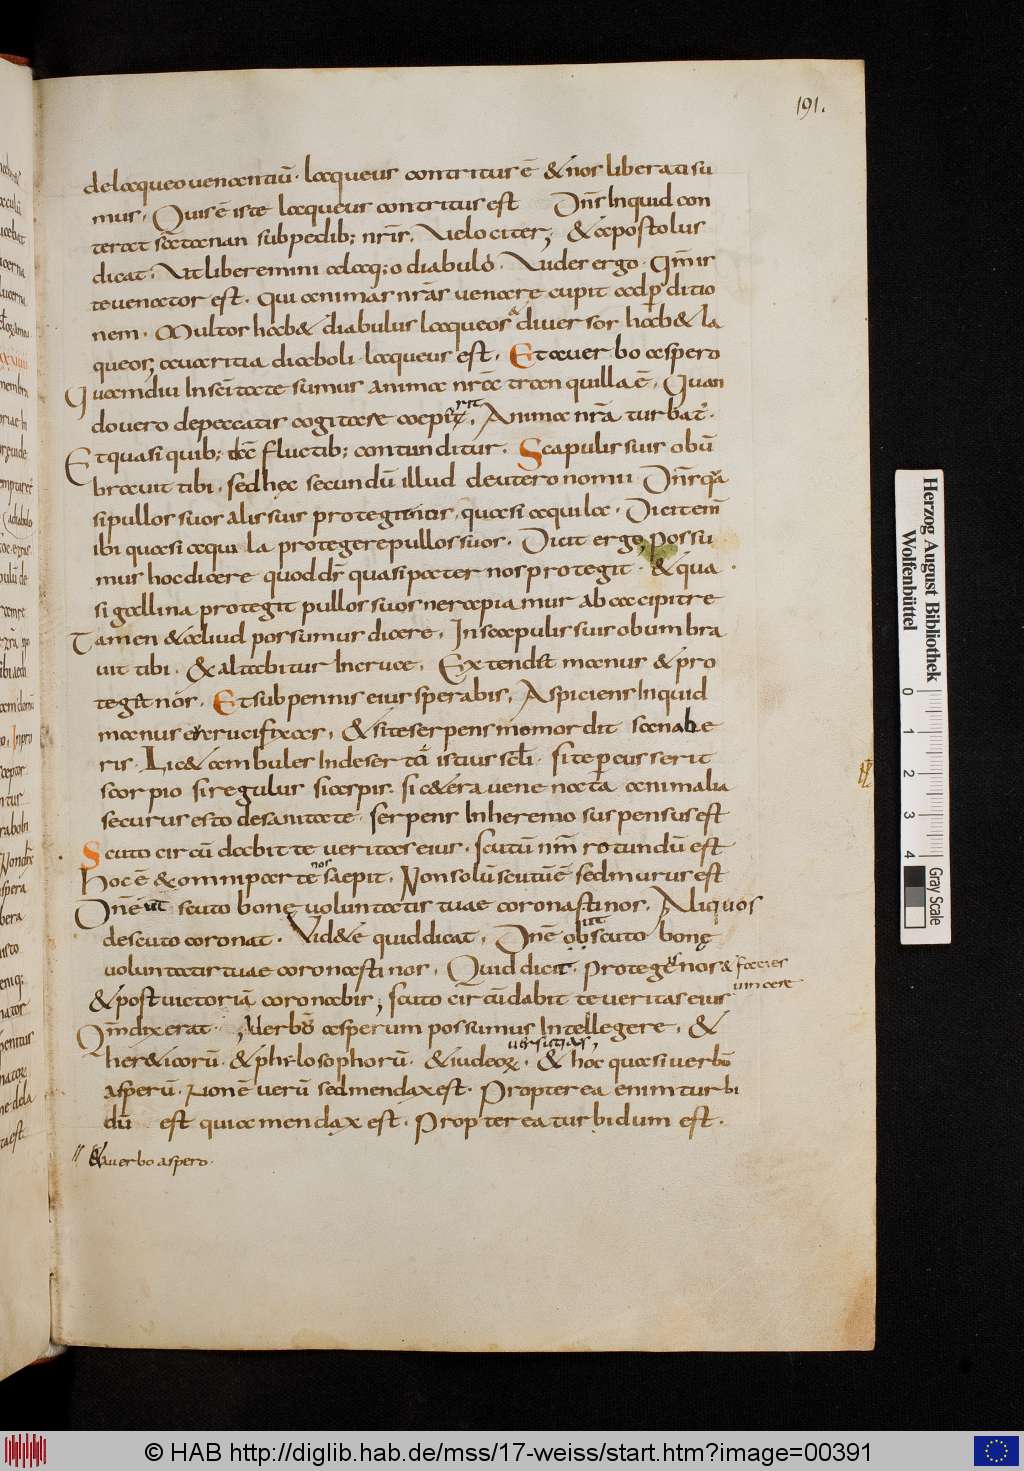 191.
delaqueo uenantiū. laqueus contritus ē & nos liberati su
mus. Quis ē iste laqueus contritus est Dn̄s Inquid con
terat satanan sub pedib; nr̄is. Uelociter; & apostolus
dicat. Ut liberemini alaq;o diaboli. Uides ergo. qm̄ is
te uenator est. qui animas nr̄as uenare cupit adp̱ditio
nem. Multos hab& diabulus laqueos & diuersos hab& la
queos; auaritia diaboli laqueus est. Et auerbo aspero
Quamdiu Insc̄itate sumus anima nr̄a tranquilla ē. Quan
do uero depeccatis cogitare coeperit. Anima nr̄a turbat̄.
Et quasi quib; fluctib; contunditur. Scapulis suis obū
brauit tibi. sed hęc secundū illud deuteronomii Dn̄s
si pullos suos alis suis protegit quasi aquila. Dicit
ibi quasi aquila protegere pullos suos. Dicit ergo possu
mus hoc dicere quod ds̄ quasi pater nos protegit. & qua
si gallina protegit pullos suos ne rapiamur ab accipitre
Tamen & aliud possumus dicere. In scapulis suis obumbra
uit tibi. & altabitur Incruce. Extendit manus & pro
tegit nos. Et sub pennis eius sperabis. Aspiciens Inquid
manus crucifixas. & si te serpens momordit sanabe
ris. Lic& ambules Indeserto istius scl̄i. si te p̱cusserit
scorpio si regulus si aspis. si c&era uenenata animalia
securus esto desanitate. serpens Inheremo suspensus est
Scuto circū dabit te ueritas eius. scutū nm̄ rotundū est
Hoc ē & omni parte nos saepit. Non solū scutū ē sed murus est
Dn̄e ut scuto bonę uoluntatis tuae coronasti nos. Aliquos
de scuto coronat. Vid&e quid dicat. Dn̄e ut scuto bonę
uoluntatis tuae coronasti nos. Quid dicit. Proteg& nos & facies
uincere
& post uictoriā coronabis; scuto circūdabit te ueritas eius
Qm̄ dixerat. Uerbū asperum possumus Intellegere. &
her&icorū. & philosophorū. & iudeoꝝ. uersutias, & hoc quasi uerbū
asperū. Non ē uerū sed mendax est. Propterea enim turbi
dū est quia mendax est. Propterea turbidum est.
// & auerbo aspero.
Herzog August Bibliothek
Wolfenbüttel
0 1 2 3 4
Gray Scale
© HAB http://diglib.hab.de/mss/17-weiss/start.htm?image=00391